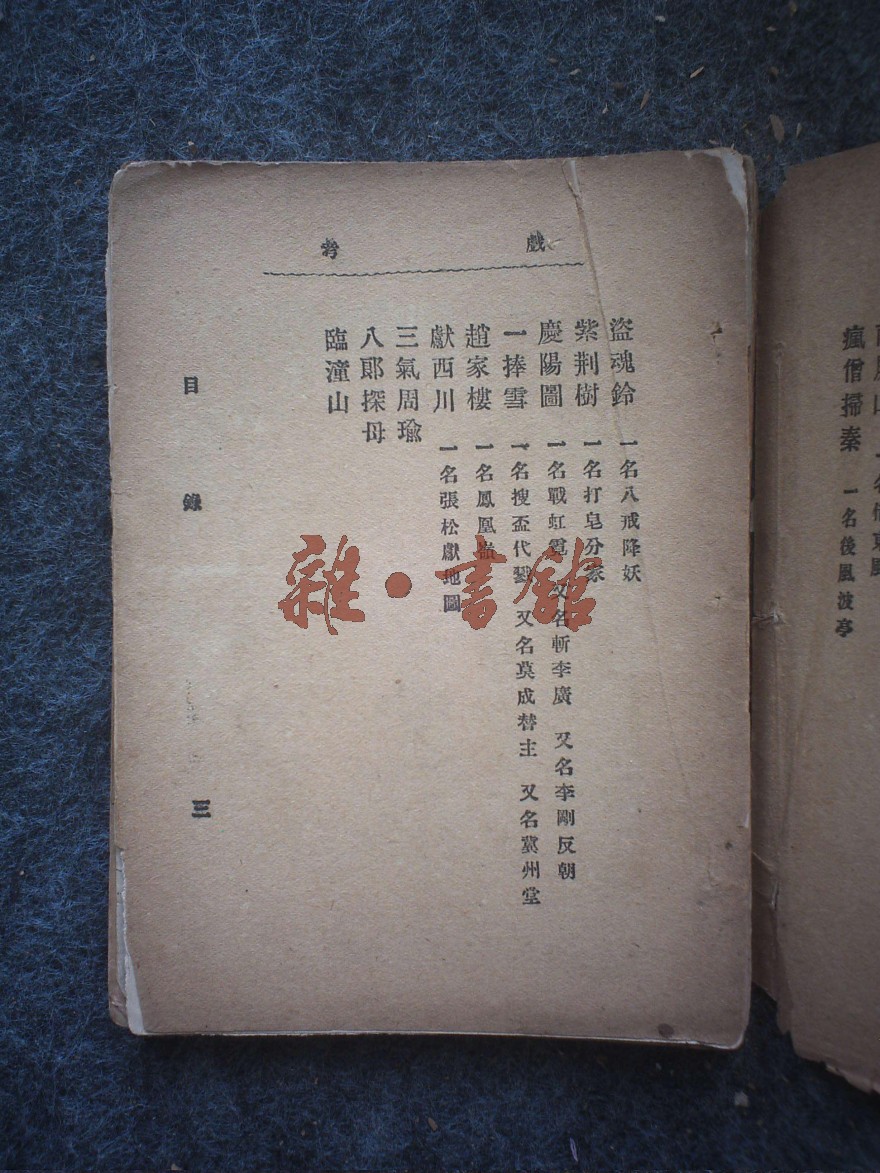 戲考
盜魂鈴 一名八戒降妖
紫荆樹 一名打皂分家
慶陽圖 一名戰虹霓 又名斬李廣 又名李剛反朝
一捧雪 一名搜盃代戮 又名莫成替主 又名冀州堂
趙家樓 一名鳳凰
獻西川 一名張松獻地圖
三氣周瑜
八郞探母
臨潼山
目錄
三
雜·書館
瘋僧掃秦 一名後風波亭